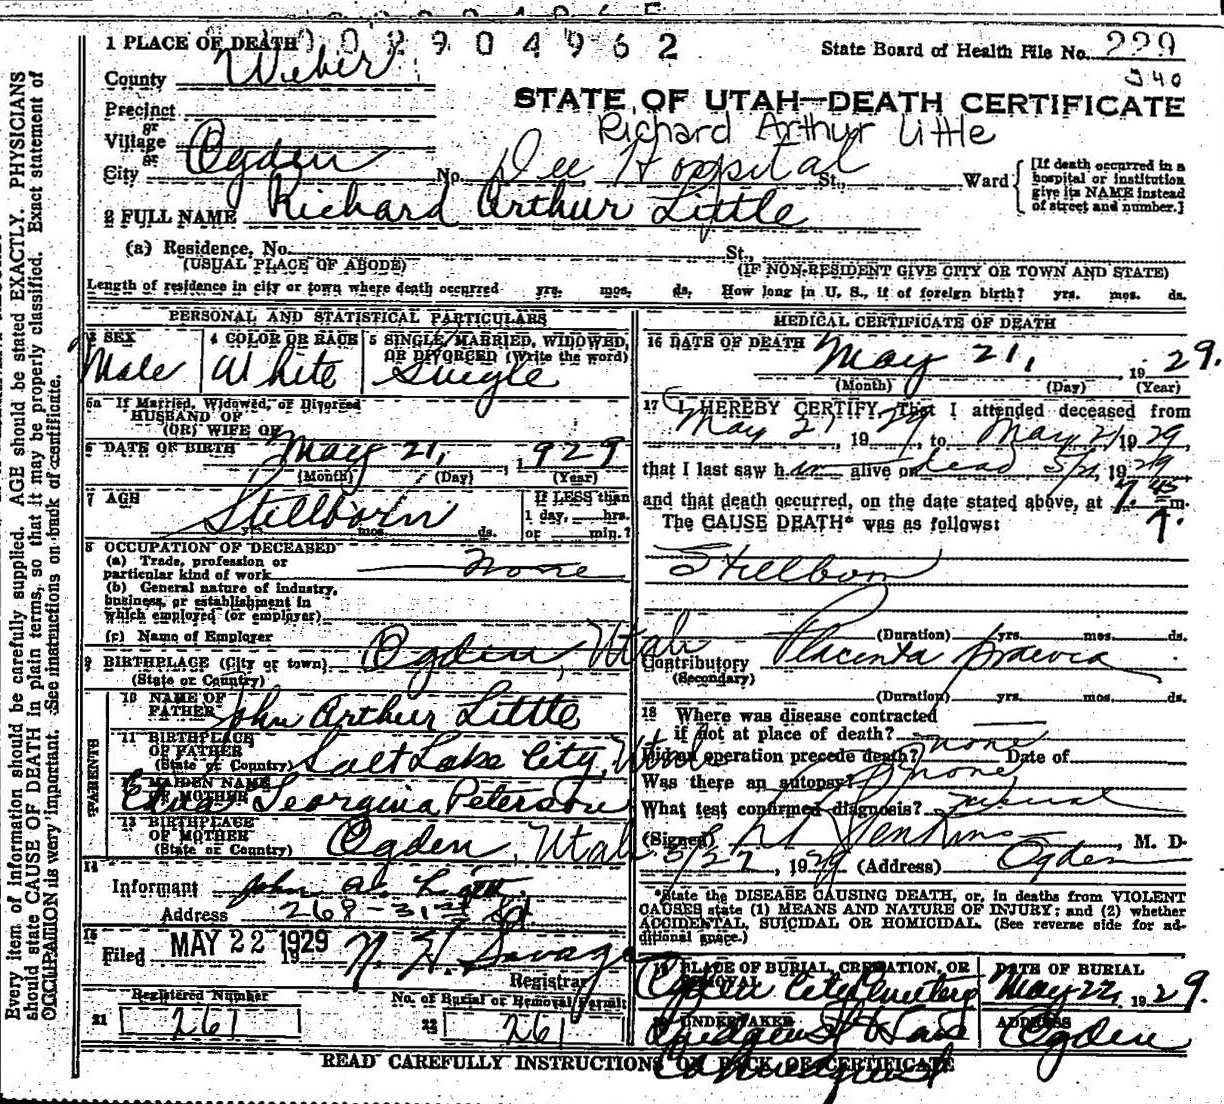 1 PLACE OF DEATH
2904962
State Board of Health File No. 229
340
County Weber
STATE OF UTAH—DEATH CERTIFICATE
Precinct
Richard Arthur Little
Village
or
City Ogden No. Dee Hospital St., Ward
[If death occurred in a hospital or institution give its NAME instead of street and number.]
2 FULL NAME Richard Arthur Little
(a) Residence, No. St.,
(USUAL PLACE OF ABODE) (IF NON-RESIDENT GIVE CITY OR TOWN AND STATE)
Length of residence in city or town where death occurred yrs. mos. ds. How long in U. S., if of foreign birth? yrs. mos. ds.
PERSONAL AND STATISTICAL PARTICULARS
3 SEX Male
4 COLOR OR RACE White
5 SINGLE, MARRIED, WIDOWED, OR DIVORCED (Write the word) Single
5a If Married, Widowed, or Divorced
HUSBAND OF
(OR) WIFE OF
6 DATE OF BIRTH May 21, 1929
(Month) (Day) (Year)
7 AGE Stillborn
yrs. mos. ds.
If LESS than
1 day, hrs.
or min.?
8 OCCUPATION OF DECEASED
(a) Trade, profession or
particular kind of work none
(b) General nature of industry,
business, or establishment in
which employed (or employer)
(c) Name of Employer
9 BIRTHPLACE (City or town) Ogden, Utah
(State or Country)
PARENTS
10 NAME OF FATHER John Arthur Little
11 BIRTHPLACE OF FATHER Salt Lake City, Utah
(State or Country)
12 MAIDEN NAME OF MOTHER Georgina Peterson
13 BIRTHPLACE OF MOTHER Ogden, Utah
(State or Country)
14
Informant John A. Little
Address 268-31st St
15
Filed MAY 22 1929 Savage
Registrar
Registered Number
21 261
No. of Burial or Removal Permit
22 261
MEDICAL CERTIFICATE OF DEATH
16 DATE OF DEATH May 21, 1929.
(Month) (Day) (Year)
17 I HEREBY CERTIFY, That I attended deceased from
May 21 1929, to May 21 1929,
that I last saw him alive on dead 5/21, 1929
and that death occurred, on the date stated above, at 7:45 P.m.
The CAUSE DEATH* was as follows:
Stillborn
(Duration) yrs. mos. ds.
Contributory Placenta praevia
(Secondary)
(Duration) yrs. mos. ds.
18 Where was disease contracted
if not at place of death?
Did an operation precede death? none Date of
Was there an autopsy? none
What test confirmed diagnosis?
(Signed) Jenkins, M. D.
5/22, 1929 (Address) Ogden
*State the DISEASE CAUSING DEATH, or, in deaths from VIOLENT
CAUSES state (1) MEANS AND NATURE OF INJURY; and (2) whether
ACCIDENTAL, SUICIDAL OR HOMICIDAL. (See reverse side for ad-
ditional space.)
19 PLACE OF BURIAL, CREMATION, OR REMOVAL Ogden City Cemetery
DATE OF BURIAL May 22, 1929.
20 UNDERTAKER
ADDRESS Ogden
READ CAREFULLY INSTRUCTIONS ON BACK OF CERTIFICATE
Every item of information should be carefully supplied. AGE should be stated EXACTLY. PHYSICIANS
should state CAUSE OF DEATH in plain terms, so that it may be properly classified. Exact statement of
OCCUPATION is very important. See instructions on back of certificate.